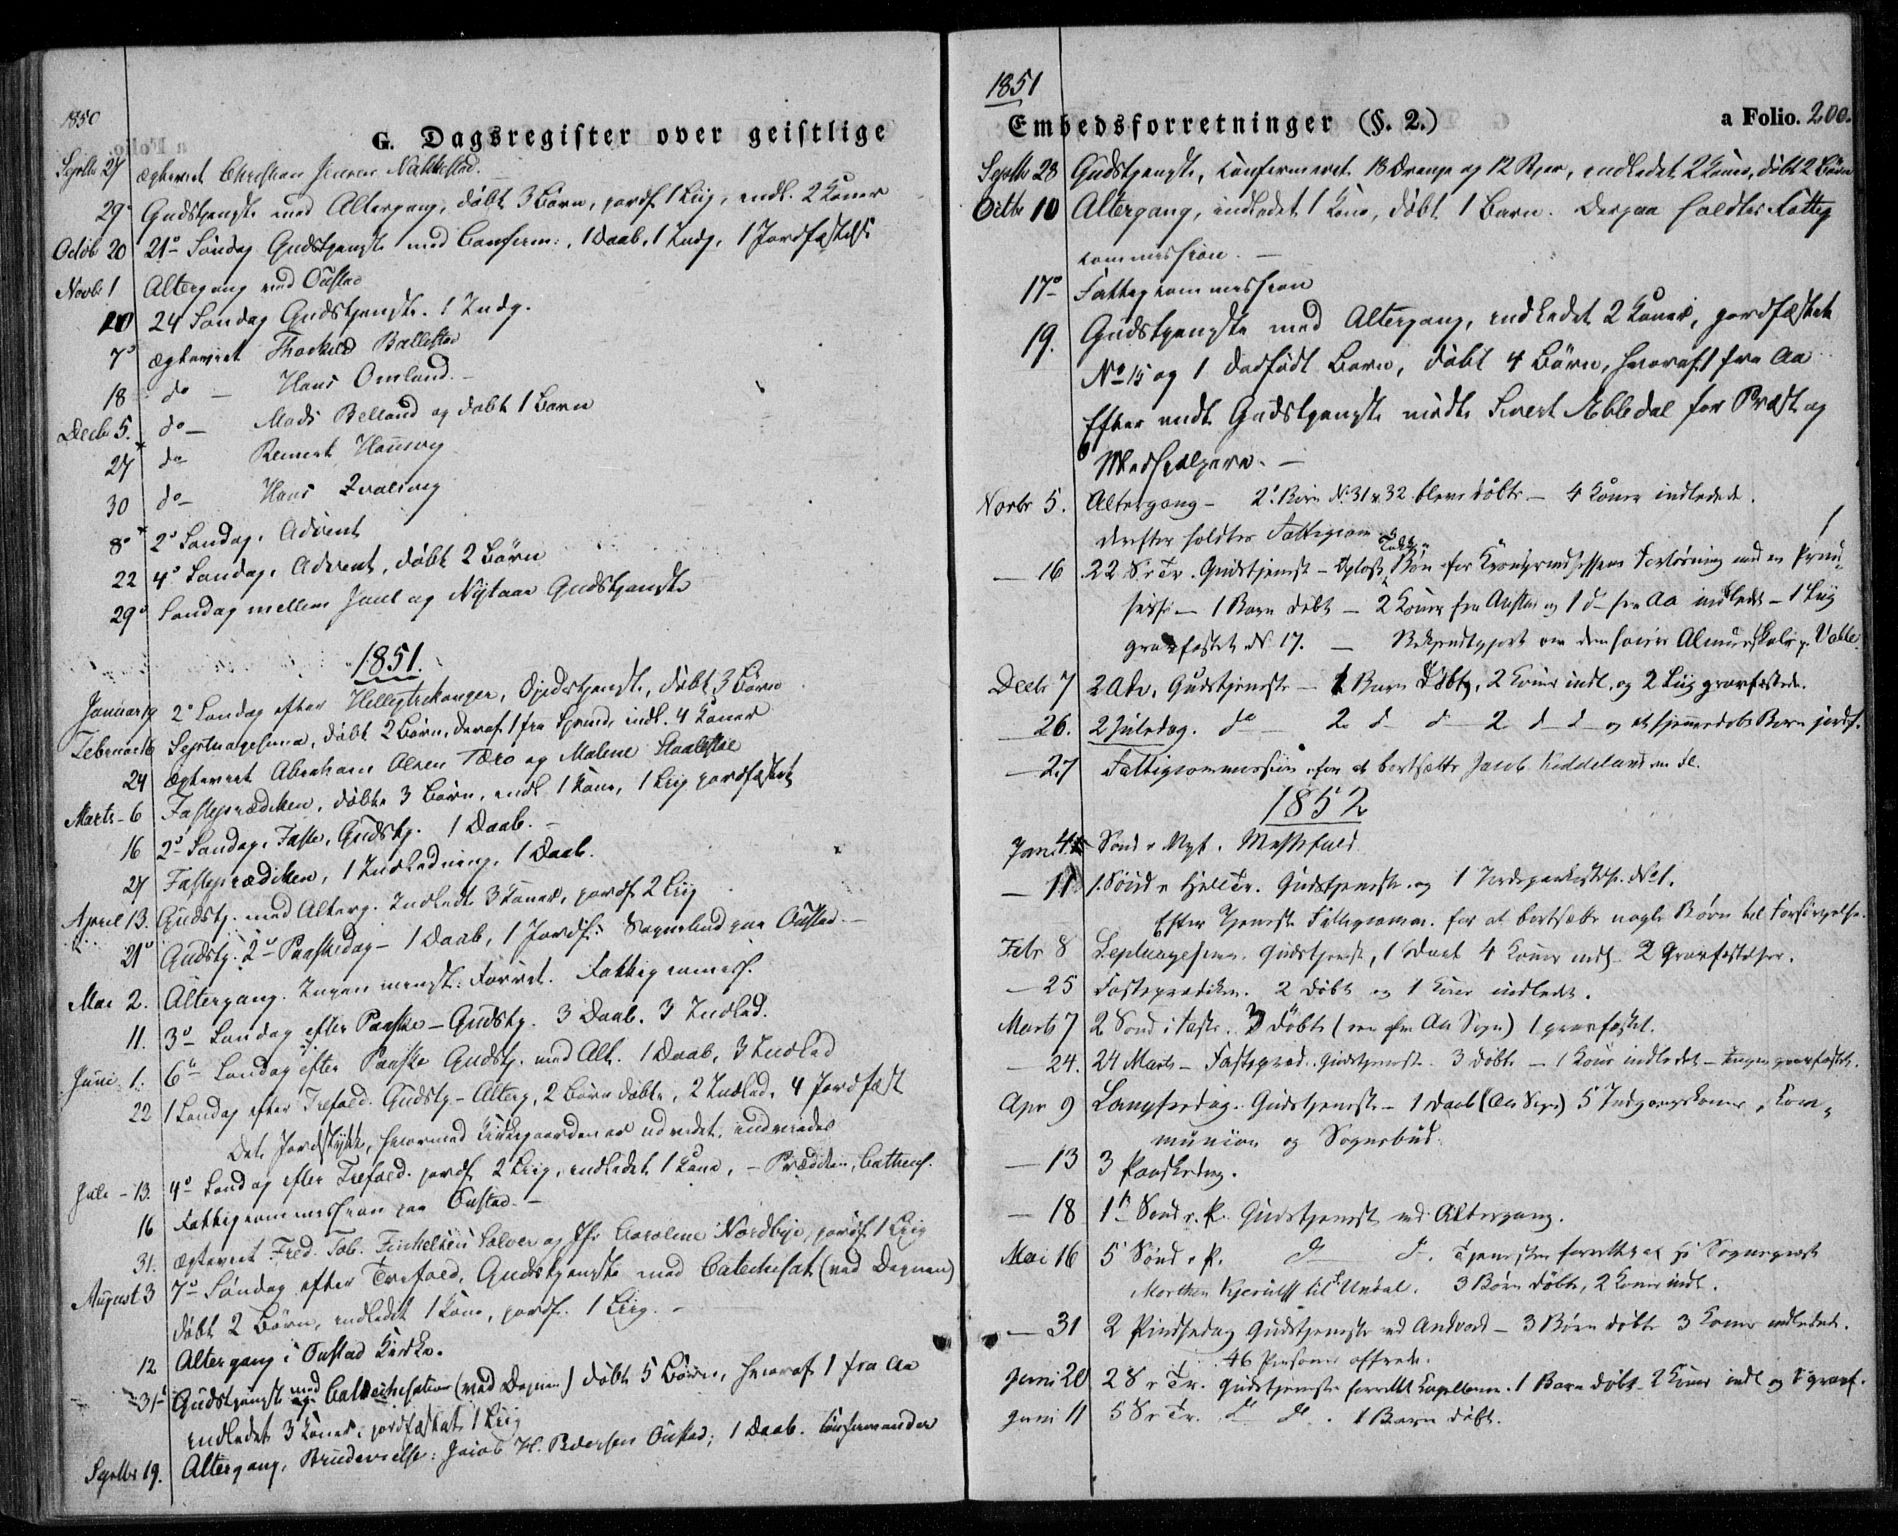 1850
G. Dagsregister over geistlige
Septbr 27 ægteviet Christian
29 Gudstjeneste med Altergang, døbt 3 Børn, jordf. 1 Liig, indl. 2 Koner
Octob 20 21 Søndag Gudstjeneste med Confirm:, 1 Daab, 1 Indg, 1 Jordfæstelse
Novbr 1 Altergang ved
10 24 Søndag Gudstjeneste. 1 Indg.
7 ægteviet Ballestad
18 do - Hans Omland.
Decbr 5. do - Mads Belland og døbt 1 Barn
27 do Reinert
30 do - Hans
8 2 Søndag i Advent
22 4 Søndag i Advent, døbt 2 Børn
29 Søndag mellem Juul og Nytaar Gudstjeneste
1851.
Januar 19 2 Søndag efter Helligtrekonger, Gudstjeneste, døbt 3 Børn
Februar 16 Septuagesima, døbt 2 Børn, deraf 1 fra indl. 4 Koner
24 ægteviet Abraham Olsen og Malene
Marts - 6 Fasteprædiken, døbte 3 Børn, indl 1 Kone, 1 Liig jordfæstet
16 2 Søndag i Faste, Gudstj. 1 Daab. -
27 Fasteprædiken, 1 Indledning, 1 Daab.
April 13. Gudstj. med Alterg. Indledt 3 Koner, jordf. 2 Liig
21 Gudstj. 2 Paaskedag - 1 Daab, 1 Jordf. Sognebud paa
Mai 2. Altergang. Ingen Forret. Fattigcommiss.
11. 3 Søndag efter Paaske - Gudstj. 3 Daab. 3 Indled.
Juni 1. 6 Søndag efter Paaske Gudstj. med Alt. 1 Daab, 3 Indled
22 1 Søndag efter Trefold. Gudstj - Alterg, 2 Børn døbte, 2 Indled, 4 Jordfæst
Det Jordstykke, hvormed Kirkegaarden er udvidet, indviedes
Juli - 13. 4 Søndag efter Trefold. jordf. 2 Liig, indledet 1 Kone, - Prædiken, Cathech.
16 Fattigcommission paa
31. ægteviet Fred. Tob. og Caroline Nordbye, jordf. 1 Liig
August 3 7 Søndag efter Trefold, Gudstjeneste med Catechisat (ved Degnen)
døbt 2 Børn, indledet 1 Kone, jordf. 1 Liig. -
12 Altergang i Kirke.
31 Gudstjeneste med Catechisation (ved Degnen) døbt 5 Børn, hvoraf 1 fra Aa
indledet 3 Koner, jordfæstet 1 Liig
Septbr 19. Altergang, Brudevielse: Jacob H. Pedersen 1 Daab. Confirmander
1851
Embedsforretninger (§. 2.) a Folio. 200.
Septbr 28 Gudstjeneste, confirmeret 18 Drenge og 12 Piger, indledet 2 Koner, døbt 2 Børn
Octbr 10 Altergang, indledet 1 Kone, døbt 1 Barn. Derpaa holdtes Fattig
commission. -
17 Fattigcommission
19. Gudstjeneste med Altergang, indledet 2 Koner, jordfæstet
No 15 og 1 dødfødt Barn, døbt 4 Børn, hvoraf 1 fra Aa
Efter endt Gudstjeneste mødte Sivert Æbledal for Præst og
Medhjælpere. -
Novbr 5. Altergang - 2 Børn No 31 & 32 bleve døbte - 4 Koner indledede.
derefter holdtes Fattigcom
- 16 22 S. e. Tr. Gudstjenest - Bøn for Kronprindsessens Forløsning med en Prind-
sesse - 1 Barn døbt - 2 Koner fra og 1 do fra Aa indledt - 1 Liig
gravfæstet No 17. - Bekjendtgjort om den høiere Almueskole p. Valle
Decbr 7 2 Adv. Gudstjeneste - 1 Barn Døbtes, 2 Koner indl. og 2 Liig gravfæstede.
- 26. 2 Juledag. do - 2 d d - 2 d d - og et hjemmedøbt Barn jordf.
- 27 Fattigcommission for at bortsætte Jacob Kiddeland
1852
Jan. 4 Sønd e. Nyt. Messefald.
- 11 1. Sønd e Hell Tr. Gudstjeneste og 1 No 1.
Efter Tjeneste Fattigcomm. for at bortsætte nogle Børn til Forsørgelse.
Febr 8 Septuagesima. Gudstjenest, 1 Daab 4 Koner indl. 2 Gravfæstelser.
- 25 Fasteprædiken. 2 døbt og 1 Kone indledet.
Marts 7 2 Sønd i Faste. 3 døbte (en fra Aa Sogn) 1 gravfæstet.
- 24. 24 Marts - Fastepræd. Gudstjenest. 3 døbte - 1 Kone indledet - Ingen gravfæstet.
Apr 9 Langfredag. Gudstjeneste - 1 Daab (Aa Sogn) 5 Indgangskoner, Kom-
munion og Sognebud.
- 13 3 Paaskedag.
- 18 1 Sønd e. P. Gudstjenest ved Altergang.
Mai 16 5 Sønd e P. d d. Tjenesten forrettet af Sognepræst
Morthen Kjerulf til Undal. 3 Børn døbte, 2 Koner indl.
- 31 2 Pindsedag Gudstjeneste - 3 Børn døbte 3 Koner indledede.
46 Personer offrede.
Juni 20 2 S e Tr. Gudstjeneste forrettet Kapellanen. 1 Barn døbt. 2 Koner indl og gravf.
Juni 11 5 S e Tr. d d. 1 Barn døbt.